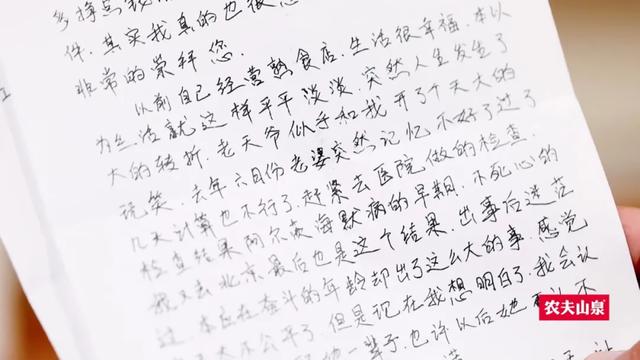 多挣点
件.其实我真的也很
非常的崇拜您.
以前自己经营熟食店.生活很幸福.本以
为生活就这样平平淡淡.突然人生发生了
大的转折.老天爷似乎和我开了个天大的
玩笑.去年六月份老婆突然记忆不好了过了
几天计算也不行了.赶紧去医院做的检查.
检查结果阿尔茨海默病的早期.不死心的
我又去北京最后也是这个结果.出事后迷茫
过.本应在奋斗的年龄却出了这么大的事.感觉
太不公平了.但是现在我想明白了.我会认
一辈子.也许以后她
农夫山泉